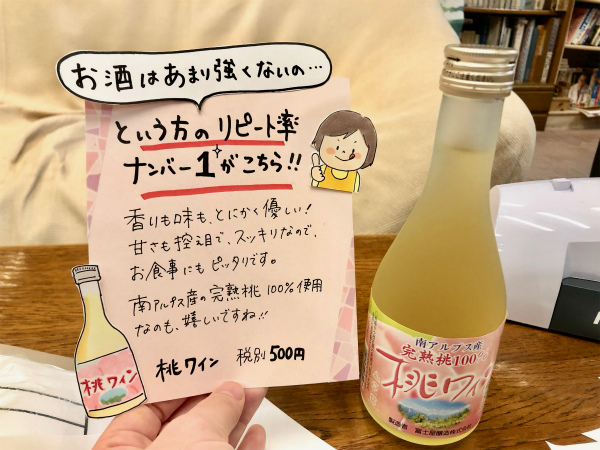 お酒はあまり強くないの…
という方のリピート率
ナンバー1がこちら!!
香りも味も、とにかく優しい!
甘さも控え目で、スッキリなので、
お食事にもピッタリです。
南アルプス産の完熟桃100%使用
なのも、嬉しいですね!!
桃ワイン 税別500円
桃ワイン
南アルプス産
完熟桃100%
桃ワイン
製造者 富士屋醸造株式会社